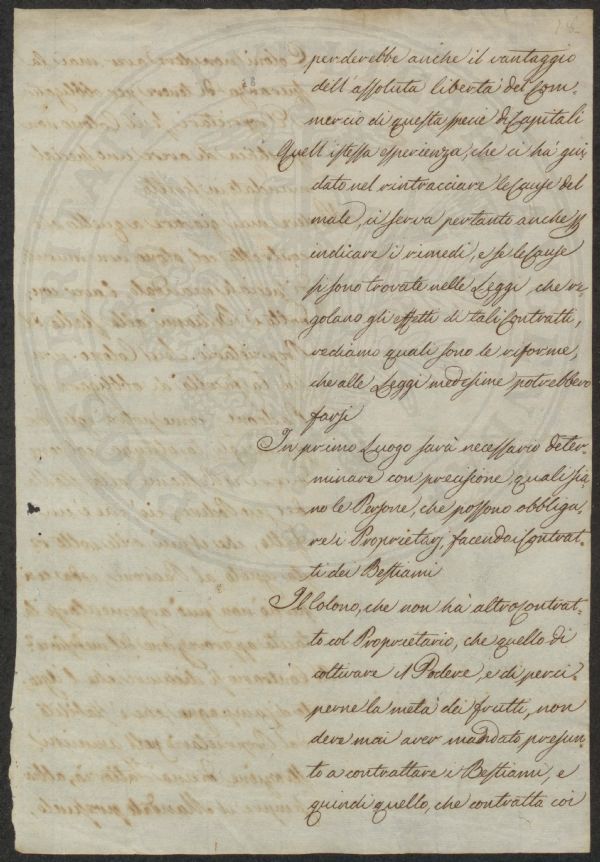 perderebbe anche il vantaggio
dell'assoluta libertà del Com-
mercio di questa specie di Capitali
Quell'istessa esperienza, che ci ha gui-
dato nel rintracciare le Cause del
male, ci serva pertanto anche
indicare i rimedi, e se le Cause
si sono trovate nelle Leggi, che re-
golano gli effetti di tali Contratti,
vediamo quali sono le riforme,
che alle Leggi medesime potrebbero
farsi
In primo Luogo sarà necessario deter-
minare con precisione, quali sia-
no le Persone, che possono obbliga-
re i Proprietarj, facendo i Contrat-
ti dei Bestiami
Il Colono, che non hà altro Contrat-
to col Proprietario, che quello di
coltivare il Podere, e di perci-
perne la metà dei frutti, non
deve mai aver mandato presun-
to a contrattare i Bestiami, e
quindi quello, che contratta coi